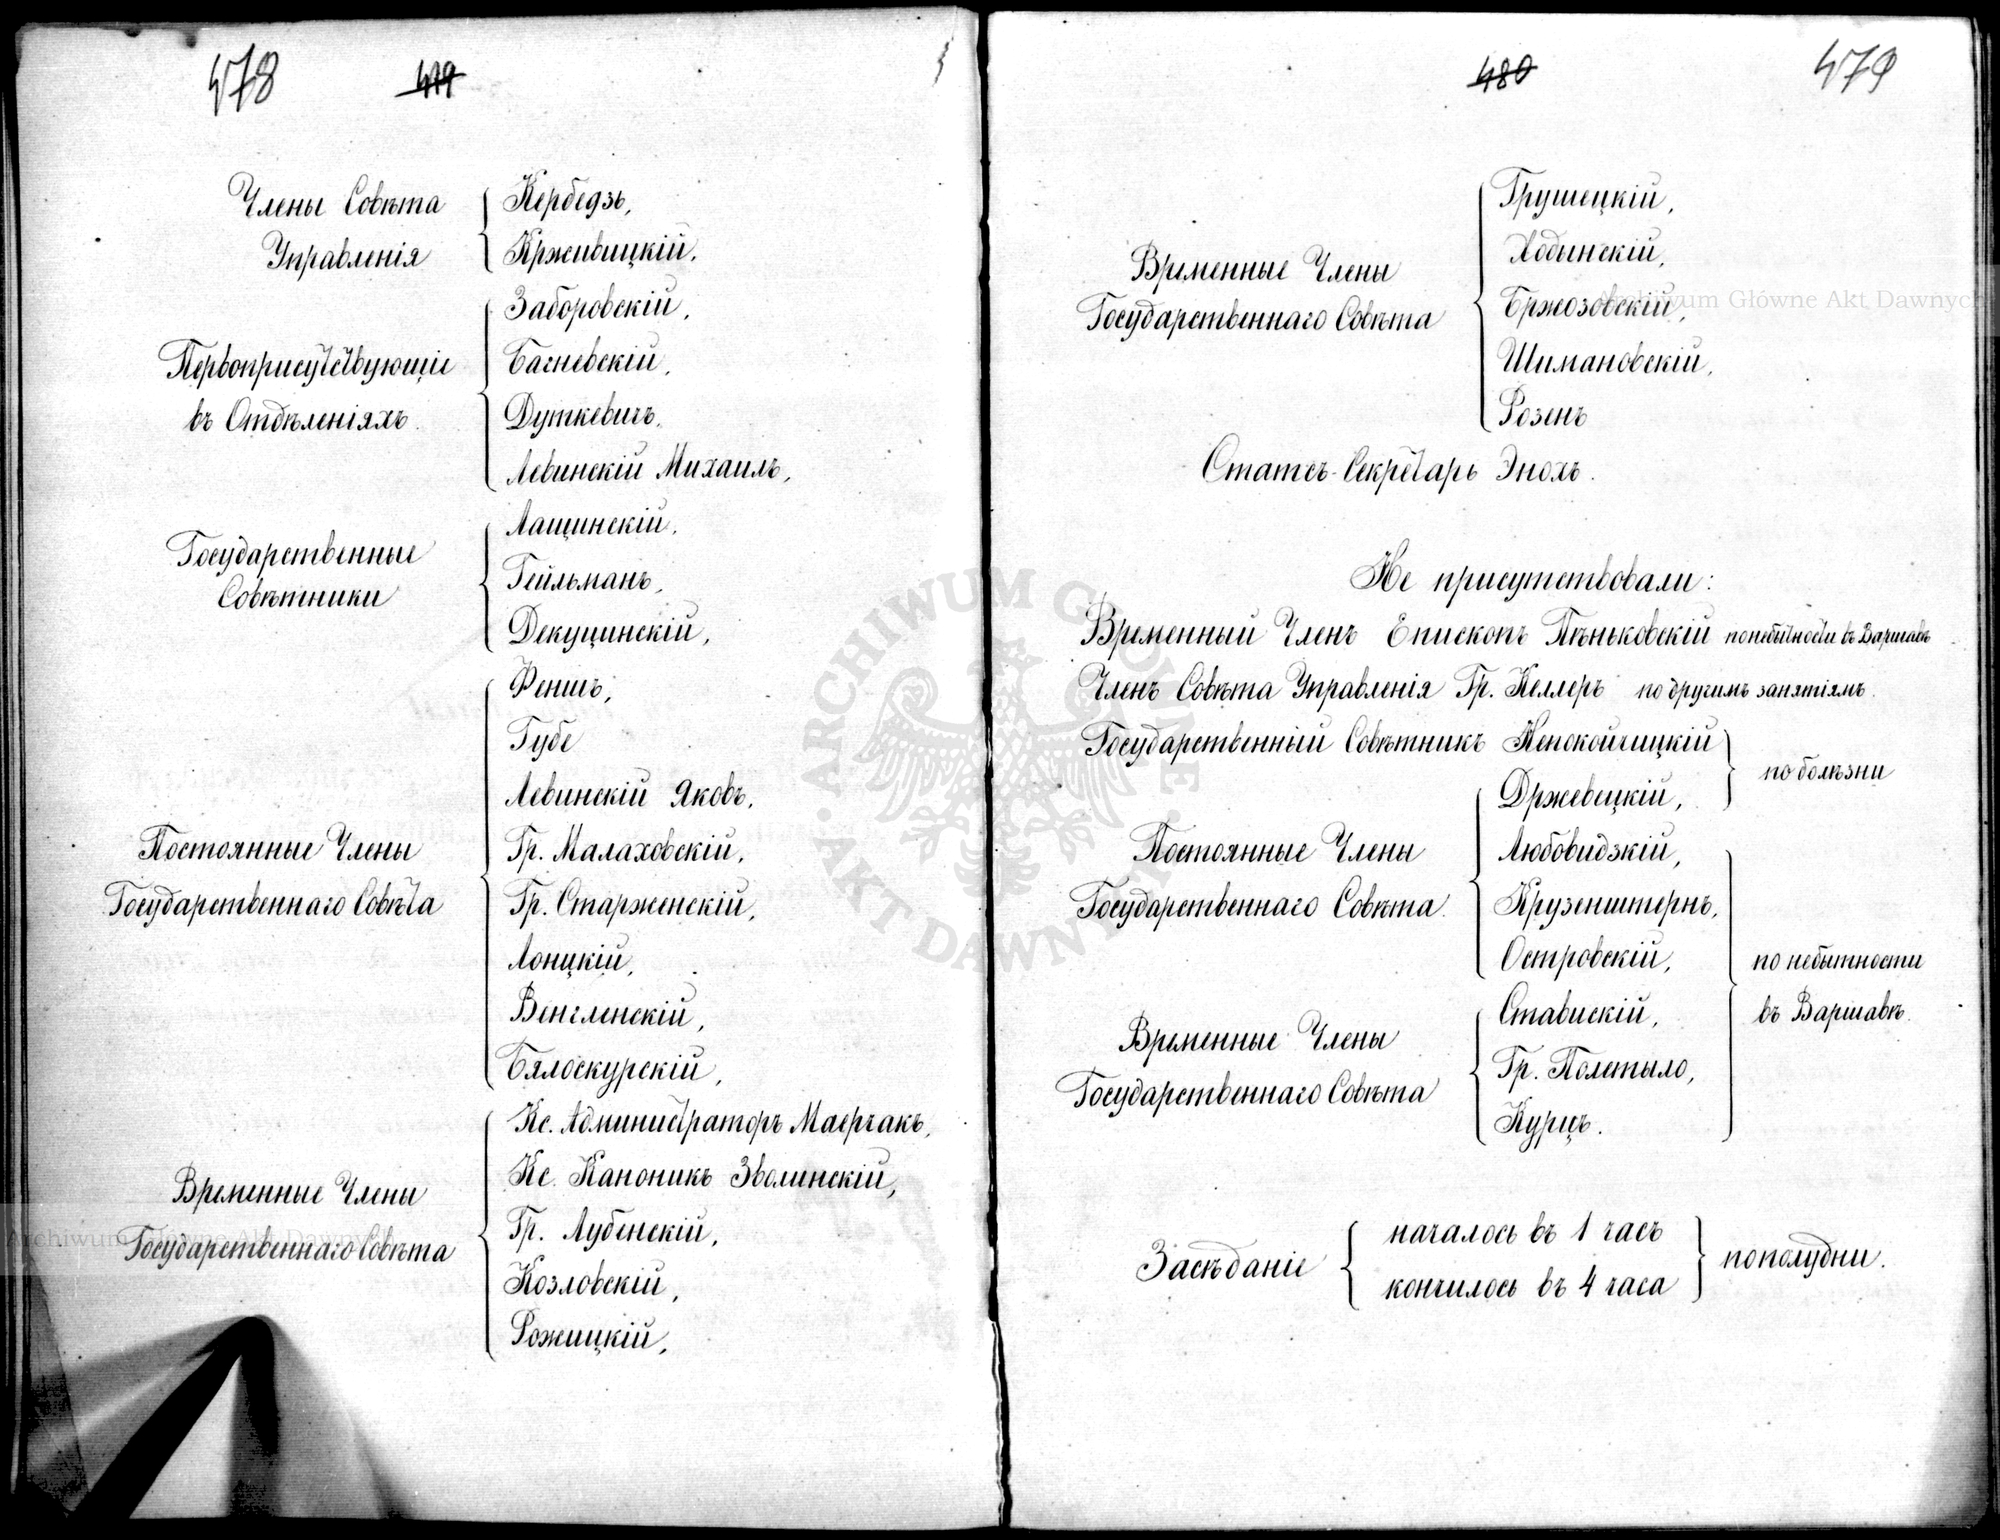 478
419
Члены Совѣта
Управленія
Кербедзь,
Крживицкій,
Первоприсутствующіе
въ Отдѣленіяхъ.
Заборовскій,
Багневскій,
Дуткевичъ,
Левинскій Михаилъ,
Государственные
Совѣтники
Лащинскій,
Гейльманъ,
Декуцинскій,
Постоянные Члены
Государственнаго Совѣта
Феншъ,
Губе
Левинскій Яковъ,
Гр. Малаховскій,
Гр. Старженскій,
Лонцкій,
Венгленскій,
Бялоскурскій,
Временные Члены
Государственнаго Совѣта
Кс. Администраторъ Маерчакъ,
Кс. Каноникъ Зволинскій,
Гр. Лубенскій,
Козловскій,
Рожицкій,
480
479
Временные Члены
Государственнаго Совѣта
Грушецкій,
Ходынскій,
Бржозовскій,
Шимановскій,
Розенъ
Статсъ-Секретарь Энохъ.
Не присутствовали:
Временный Членъ Епископъ Пѣньковскій по небытности въ Варшавѣ
Членъ Совѣта Управленія Гр. Келлеръ по другимъ занятіямъ.
Государственный Совѣтникъ Непокойчицкій
по болѣзни
Постоянные Члены
Государственнаго Совѣта.
Држевецкій,
Любовидзкій,
Крузенштернъ,
Островскій,
Временные Члены
Государственнаго Совѣта
Ставискій,
Гр. Полетыло,
Курцъ.
по небытности
въ Варшавѣ.
Засѣданіе
началось въ 1 часъ
кончилось въ 4 часа
пополудни.
Archiwum Główne Akt Dawnych
Archiwum Główne Akt Dawnych
ARCHIWUM GŁÓWNE AKT DAWNYCH